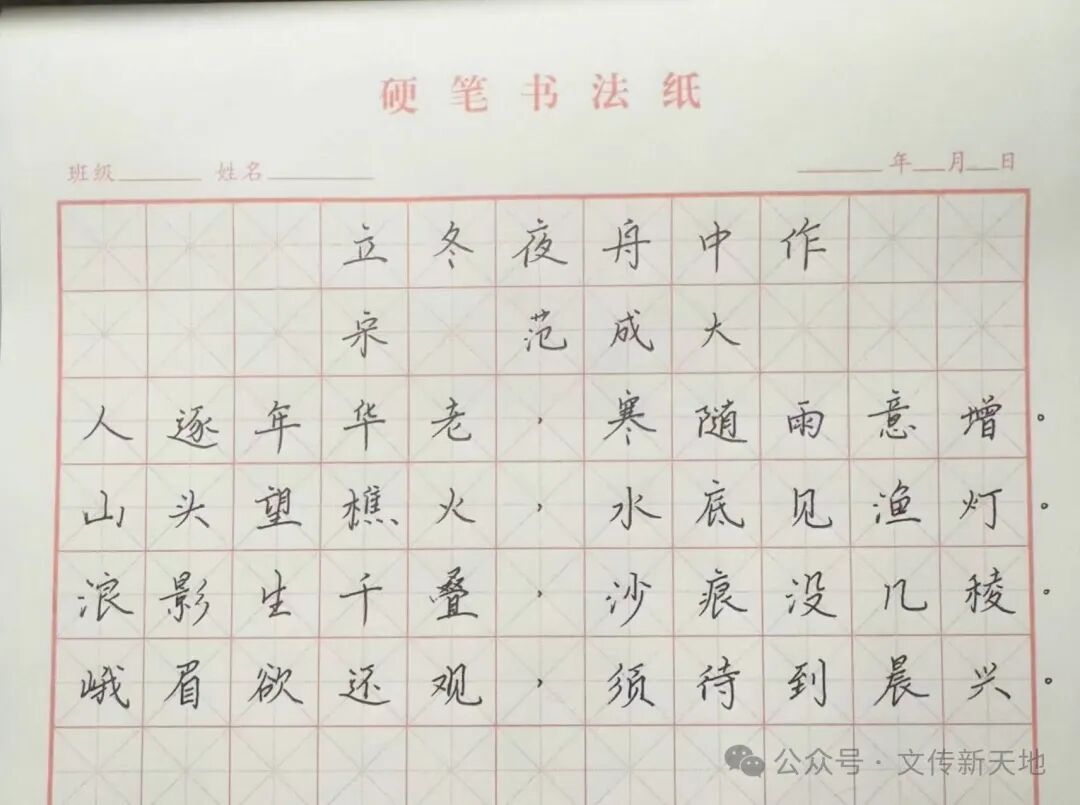 硬笔书法纸
班级 姓名 年 月 日
立冬夜舟中作
宋 范成大
人逐年华老，寒随雨意增。
山头望樵火，水底见渔灯。
浪影生千叠，沙痕没几稜。
峨眉欲还观，须待到晨兴。
公众号·文传新天地